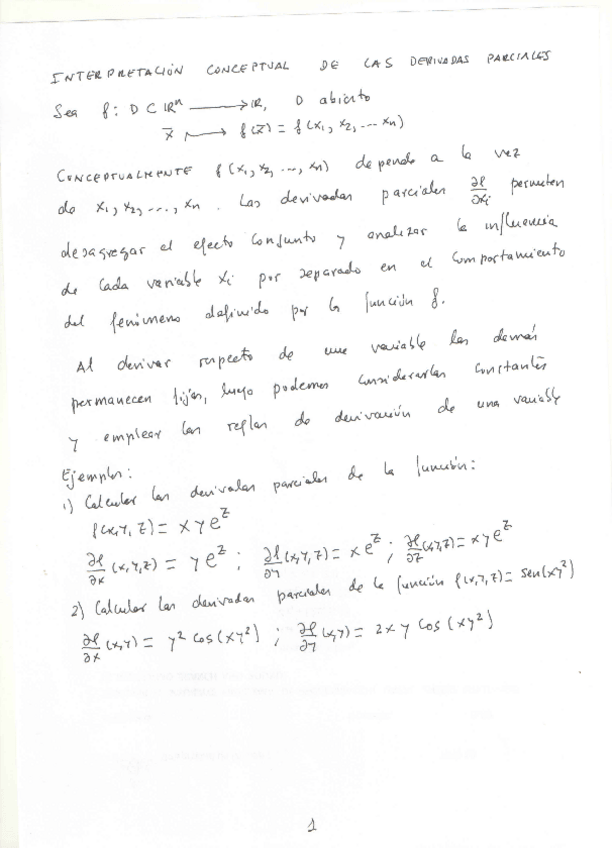 INTERPRETACIÓN CONCEPTUAL DE LAS DERIVADAS PARCIALES
Sea f: D ⊂ ℝⁿ ⟶ ℝ, D abierto
x̄ ⟶ f(x̄) = f(x₁, x₂, ... xₙ)
CONCEPTUALMENTE f(x₁, x₂, ..., xₙ) depende a la vez
de x₁, x₂, ..., xₙ. Las derivadas parciales ∂f/∂xᵢ permiten
desagregar el efecto conjunto y analizar la influencia
de cada variable xᵢ por separado en el comportamiento
del fenómeno definido por la función f.
Al derivar respecto de una variable las demás
permanecen fijas, luego podemos considerarlas constantes
y emplear las reglas de derivación de una variable
Ejemplos:
1) Calcular las derivadas parciales de la función:
f(x,y,z) = x y e^z
∂f/∂x (x,y,z) = y e^z ; ∂f/∂y (x,y,z) = x e^z ; ∂f/∂z (x,y,z) = x y e^z
2) Calcular las derivadas parciales de la función f(x,y,z) = sen(xy²)
∂f/∂x (x,y) = y² cos(xy²) ; ∂f/∂y (x,y) = 2xy cos(xy²)
1